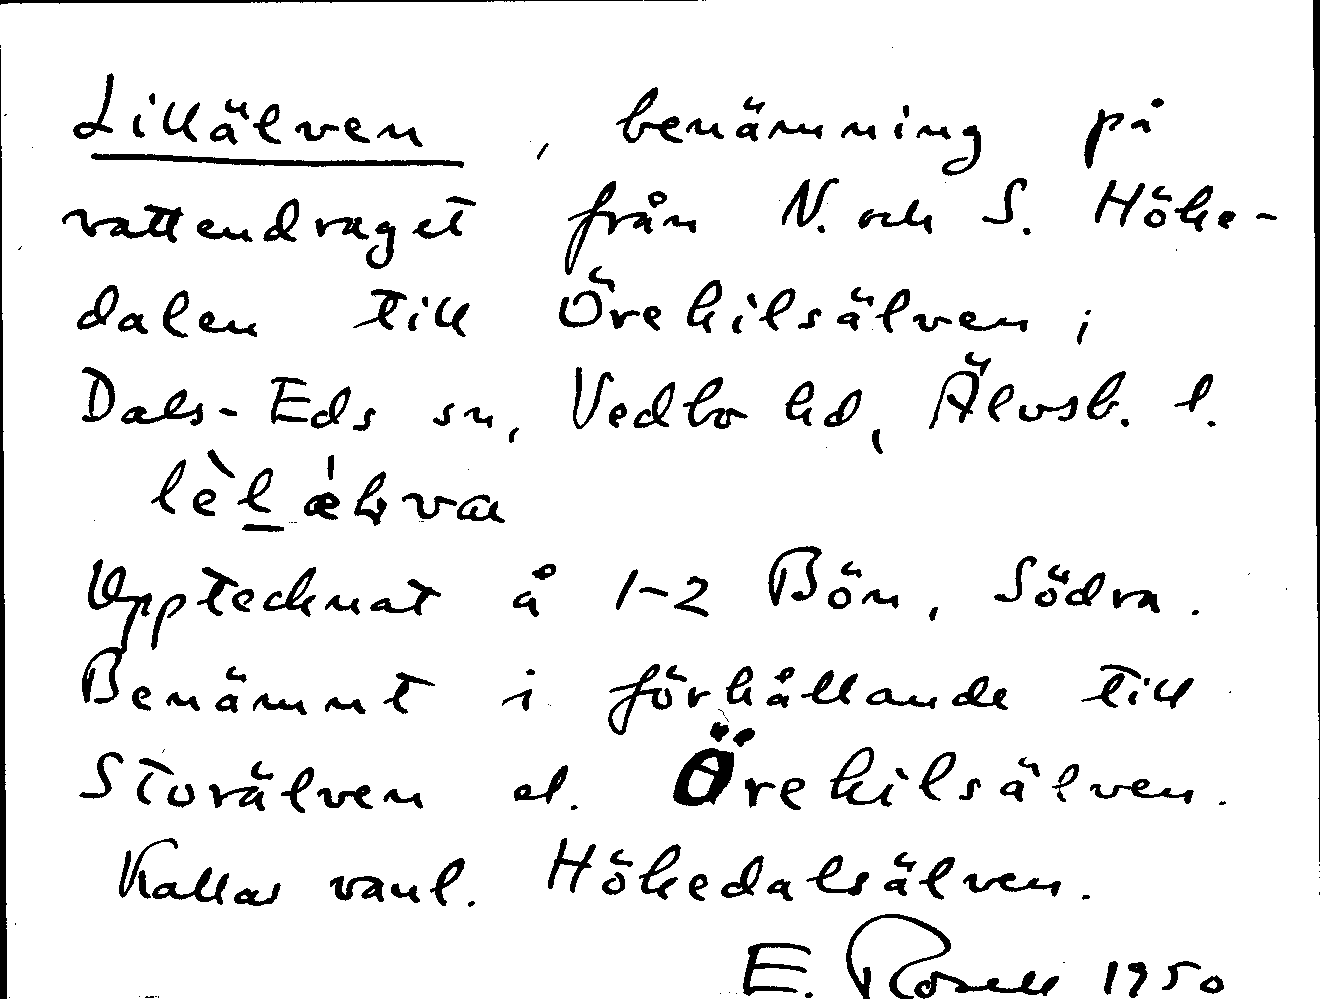 Lillälven, benämning på
vattendraget från N. och S. Höke-
dalen till Örekilsälven i
Dals-Eds sn, Vedbo hd, Älvsb. l.
Upptecknat å 1-2 Bön, Södra.
Benämnt i förhållande till
Storälven el. Örekilsälven.
Kallas vanl. Hökedalsälven.
E. Rosell 1950